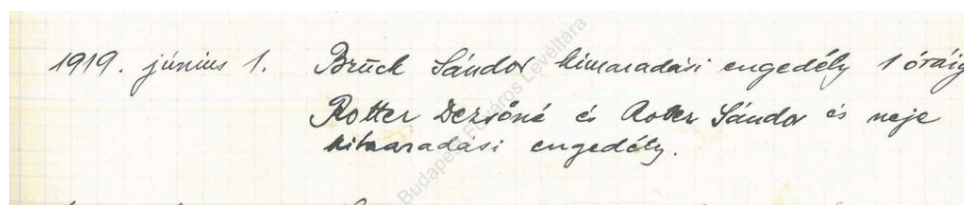 1919. június 1. Brück Sándor kimaradási engedély 1 óráig
Rotter Dezsőné és Rotter Sándor és neje
kimaradási engedély.
Budapest Főváros Levéltára